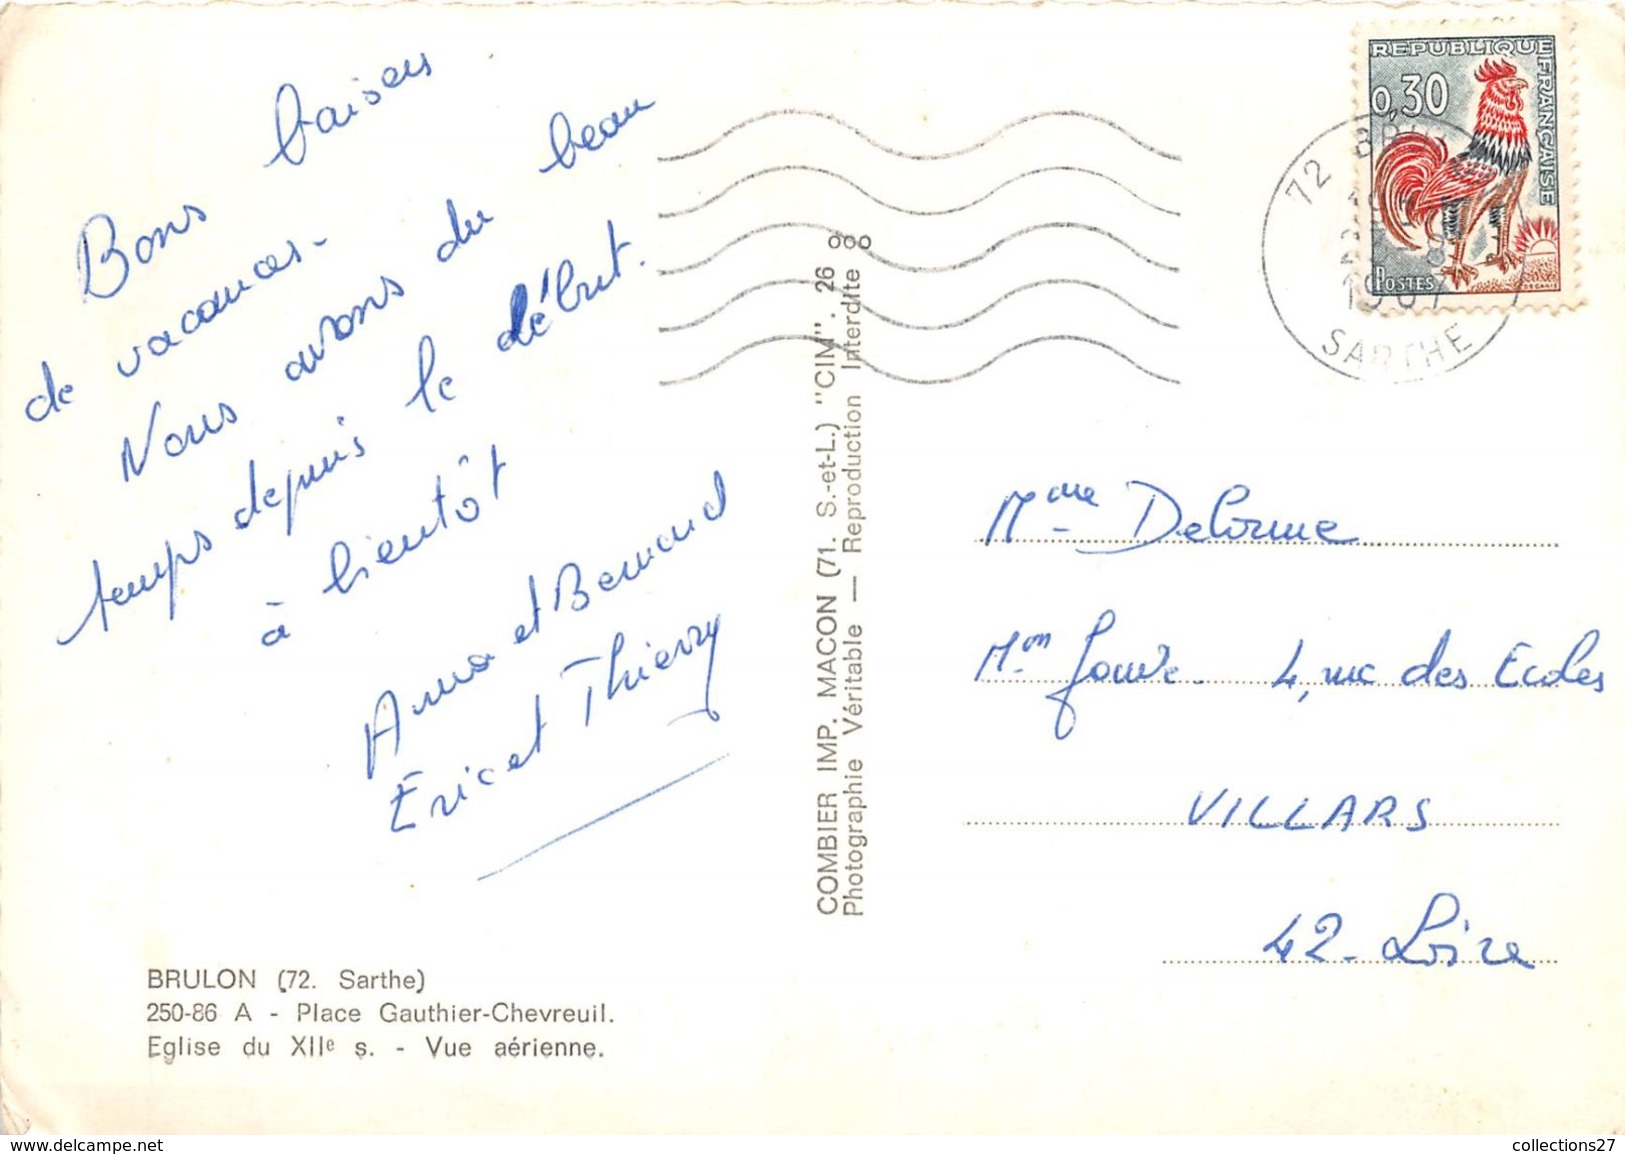 Bons baisers
de vacances.
Nous avons du beau
temps depuis le début.
à bientôt
Anna et Bernard
Eric et Thierry
BRULON (72. Sarthe)
250-86 A - Place Gauthier-Chevreuil.
Eglise du XIIe s. - Vue aérienne.
COMBIER IMP. MACON (71. S.-et-L.) "CIM". 26
Photographie Véritable — Reproduction Interdite
REPUBLIQUE FRANÇAISE
0,30
POSTES
DECARIS
72
1967
SARTHE
Mme Delorme
Mon Jouve. 4, rue des Ecoles
VILLARS
42 - Loire
www.delcampe.net
collections27